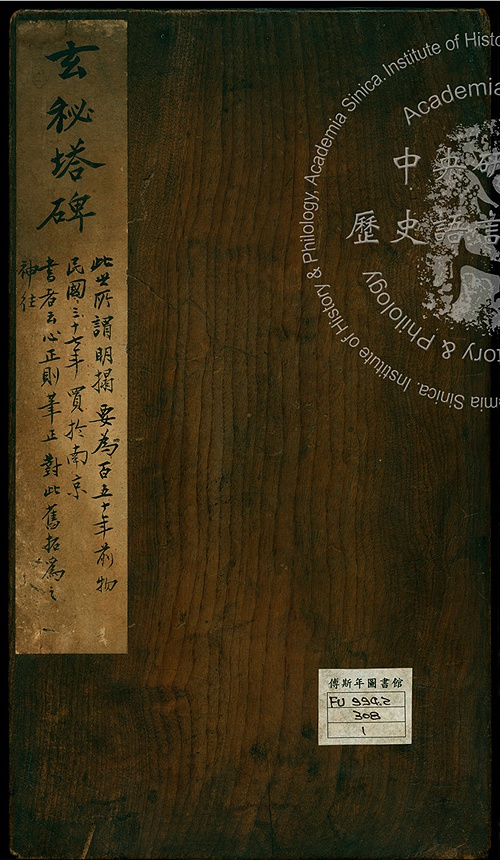 玄秘塔碑
此世所謂明搨要為百五十年前物
民國三十七年買於南京
書者云心正則筆正對此舊拓為之
神往
傅斯年圖書館
FU 994.2
308
1
Institute of History & Philology, Academia Sinica.
中央研
歷史語言